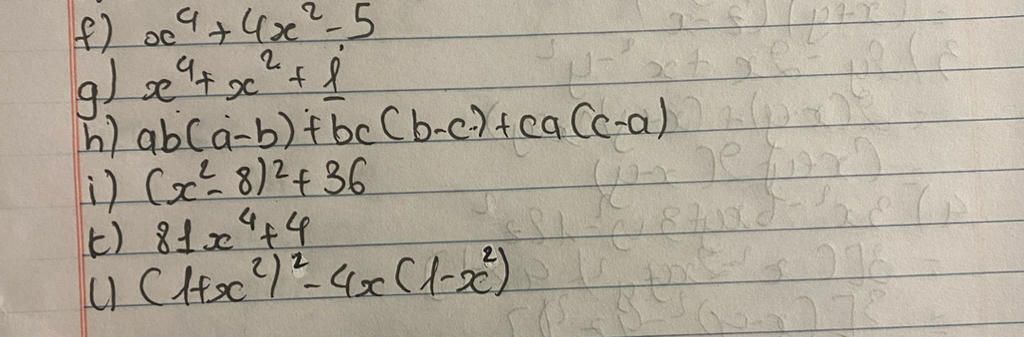 f) x⁴ + 4x² - 5
g) x⁴ + x² + 1
h) ab(a-b) + bc(b-c) + ca(c-a)
i) (x² - 8)² + 36
k) 81x⁴ + 4
l) (1+x²)² - 4x(1-x²)